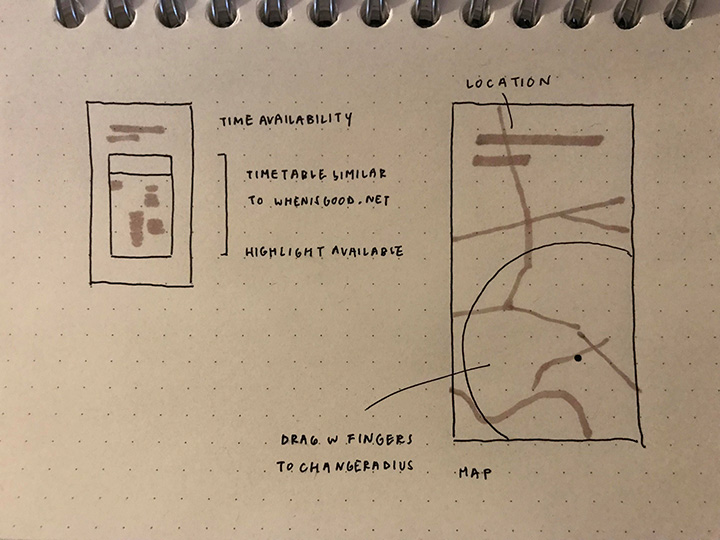 TIME AVAILABILITY
TIMETABLE SIMILAR
TO WHENISGOOD.NET
HIGHLIGHT AVAILABLE
LOCATION
DRAG W FINGERS
TO CHANGERADIUS
MAP